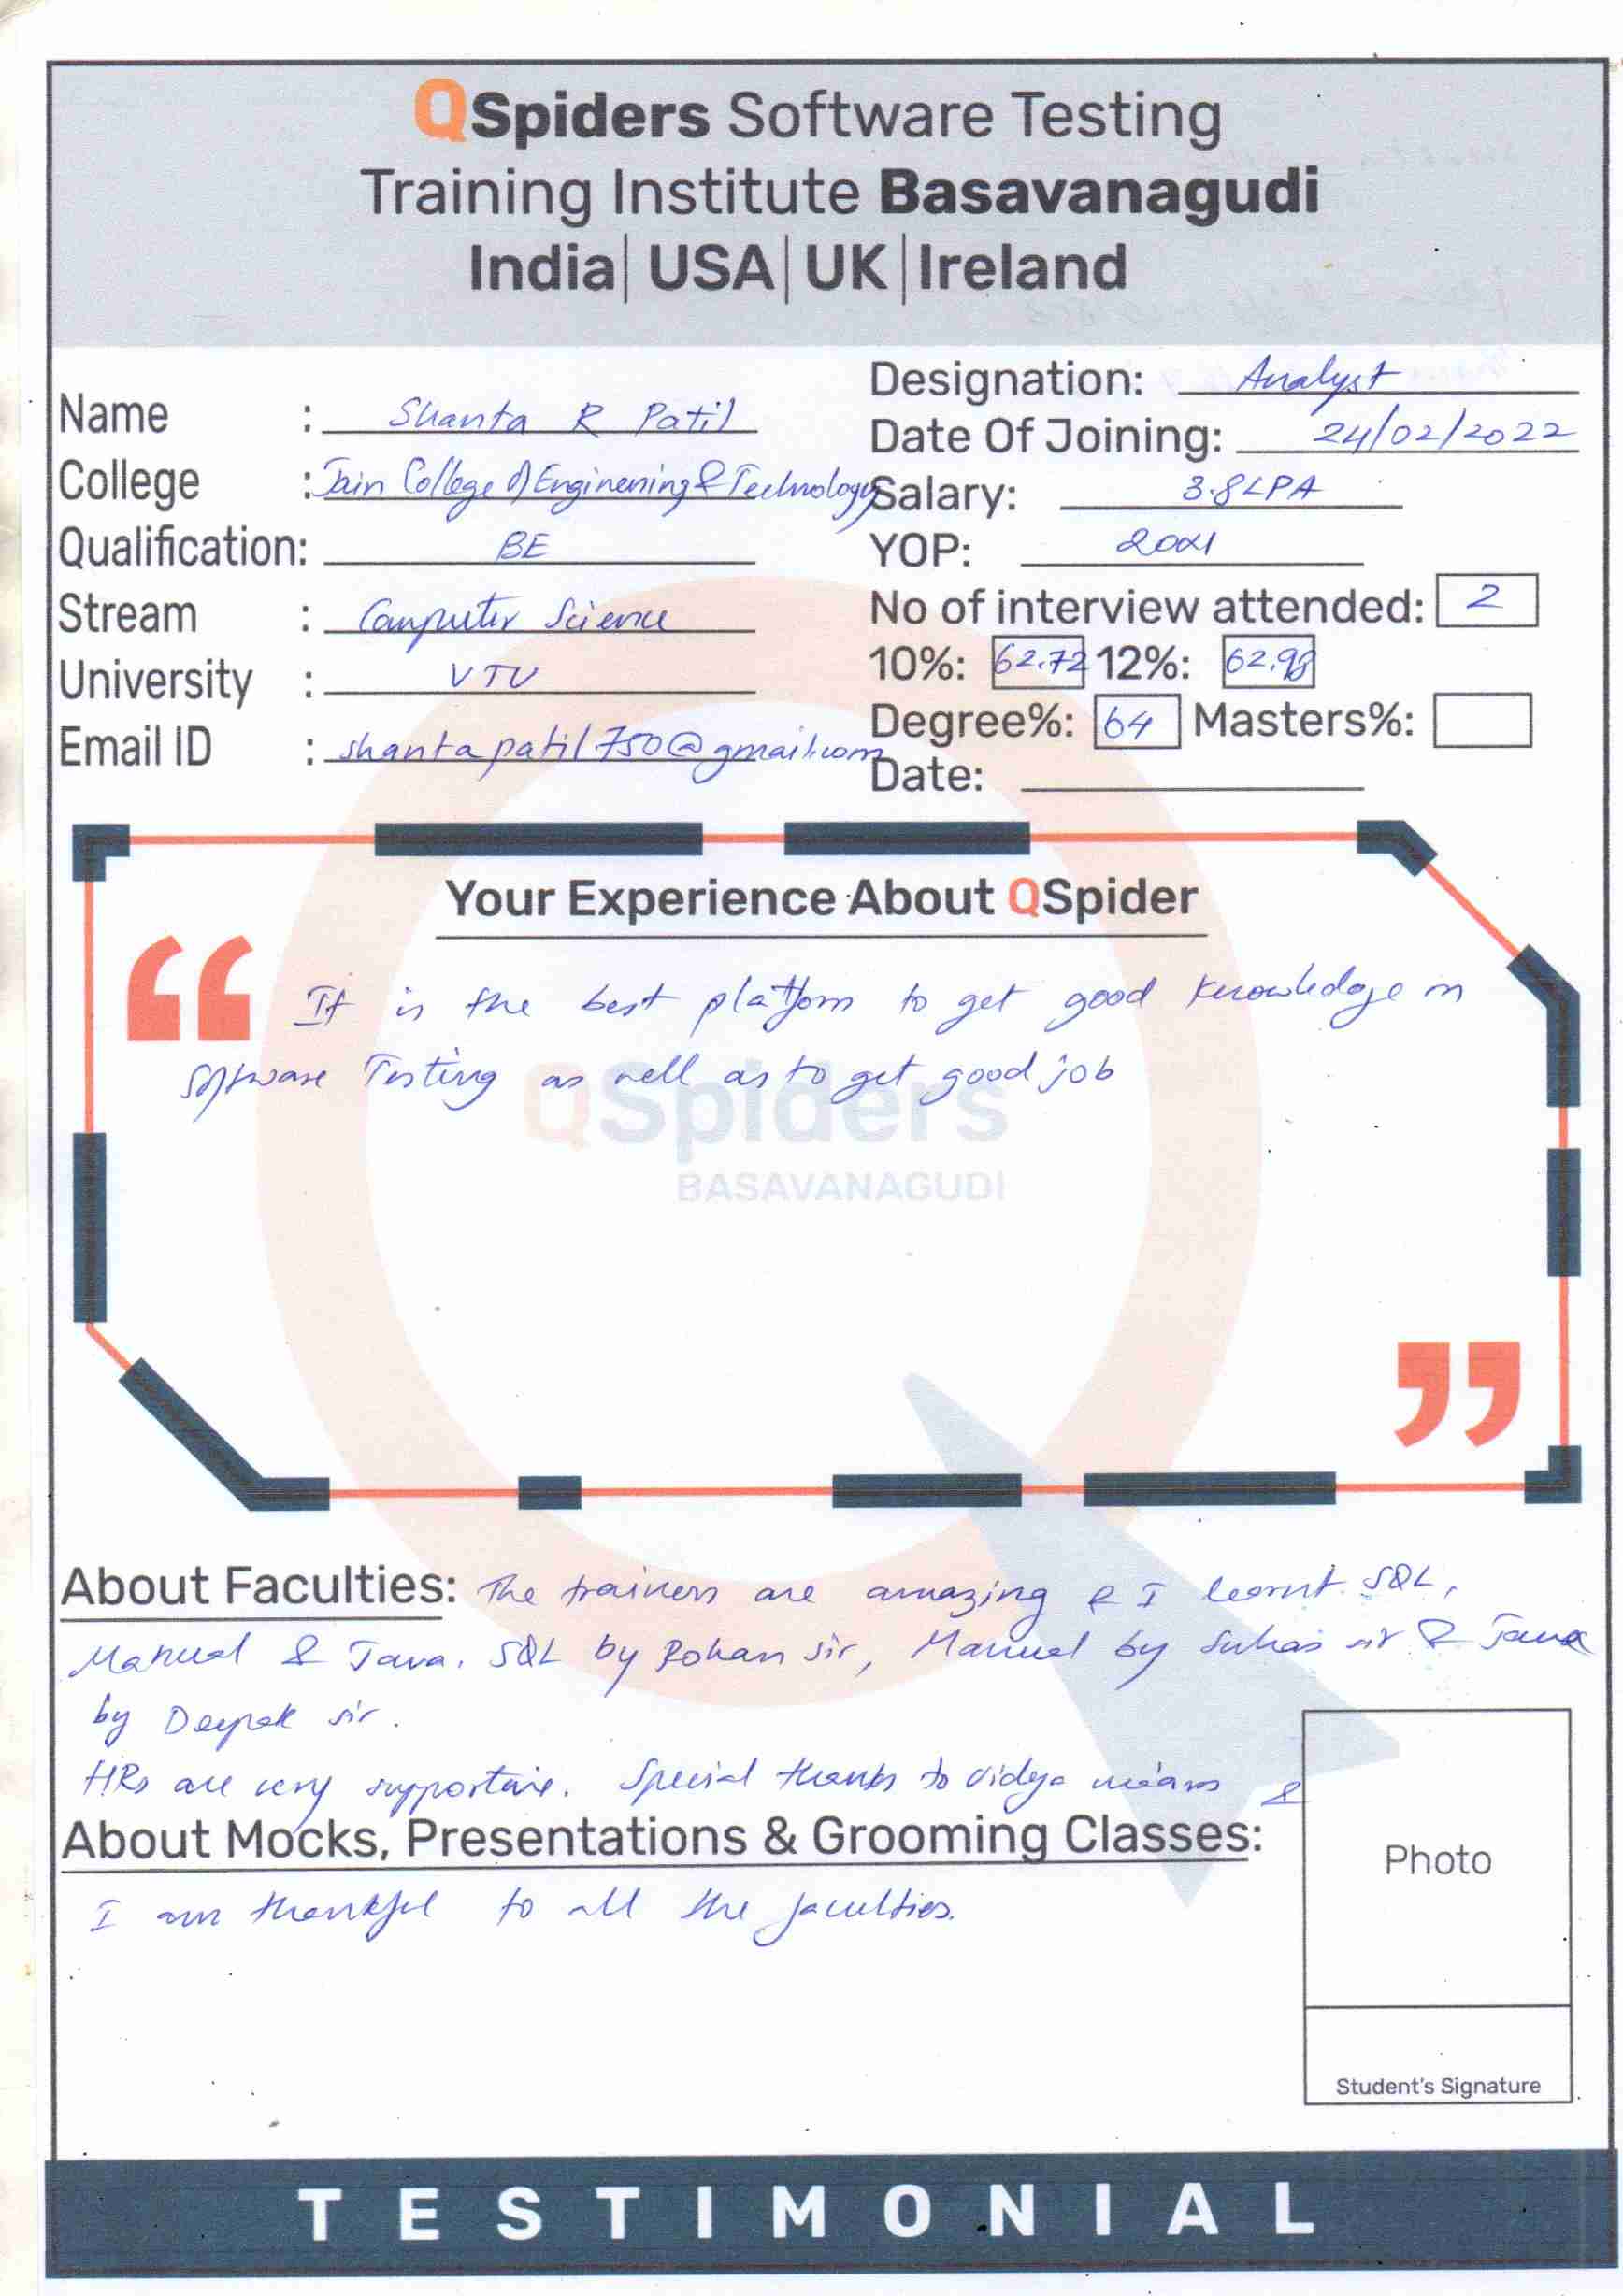 QSpiders Software Testing
Training Institute Basavanagudi
India | USA | UK | Ireland
Name : Shanta R Patil
College : Jain College of Enginening & Technology
Qualification: BE
Stream : Computer Science
University : VTU
Email ID : shantapatil750@gmail.com
Designation: Analyst
Date Of Joining: 24/02/2022
Salary: 3.8LPA
YOP: 2021
No of interview attended: 2
10%: 62.72 12%: 62.98
Degree%: 64 Masters%:
Date:
Your Experience About QSpider
“ It is the best platform to get good knowledge in
software Testing as well as to get good job
QSpiders
BASAVANAGUDI
”
About Faculties: The trainers are amazing & I learnt SQL,
Manual & Java. SQL by Rohan sir, Manual by Suhas sir & Java
by Deepak sir.
HRs are very supportive. Special thanks to vidya &
About Mocks, Presentations & Grooming Classes:
I am thankful to all the faculties.
Photo
Student's Signature
TESTIMONIAL